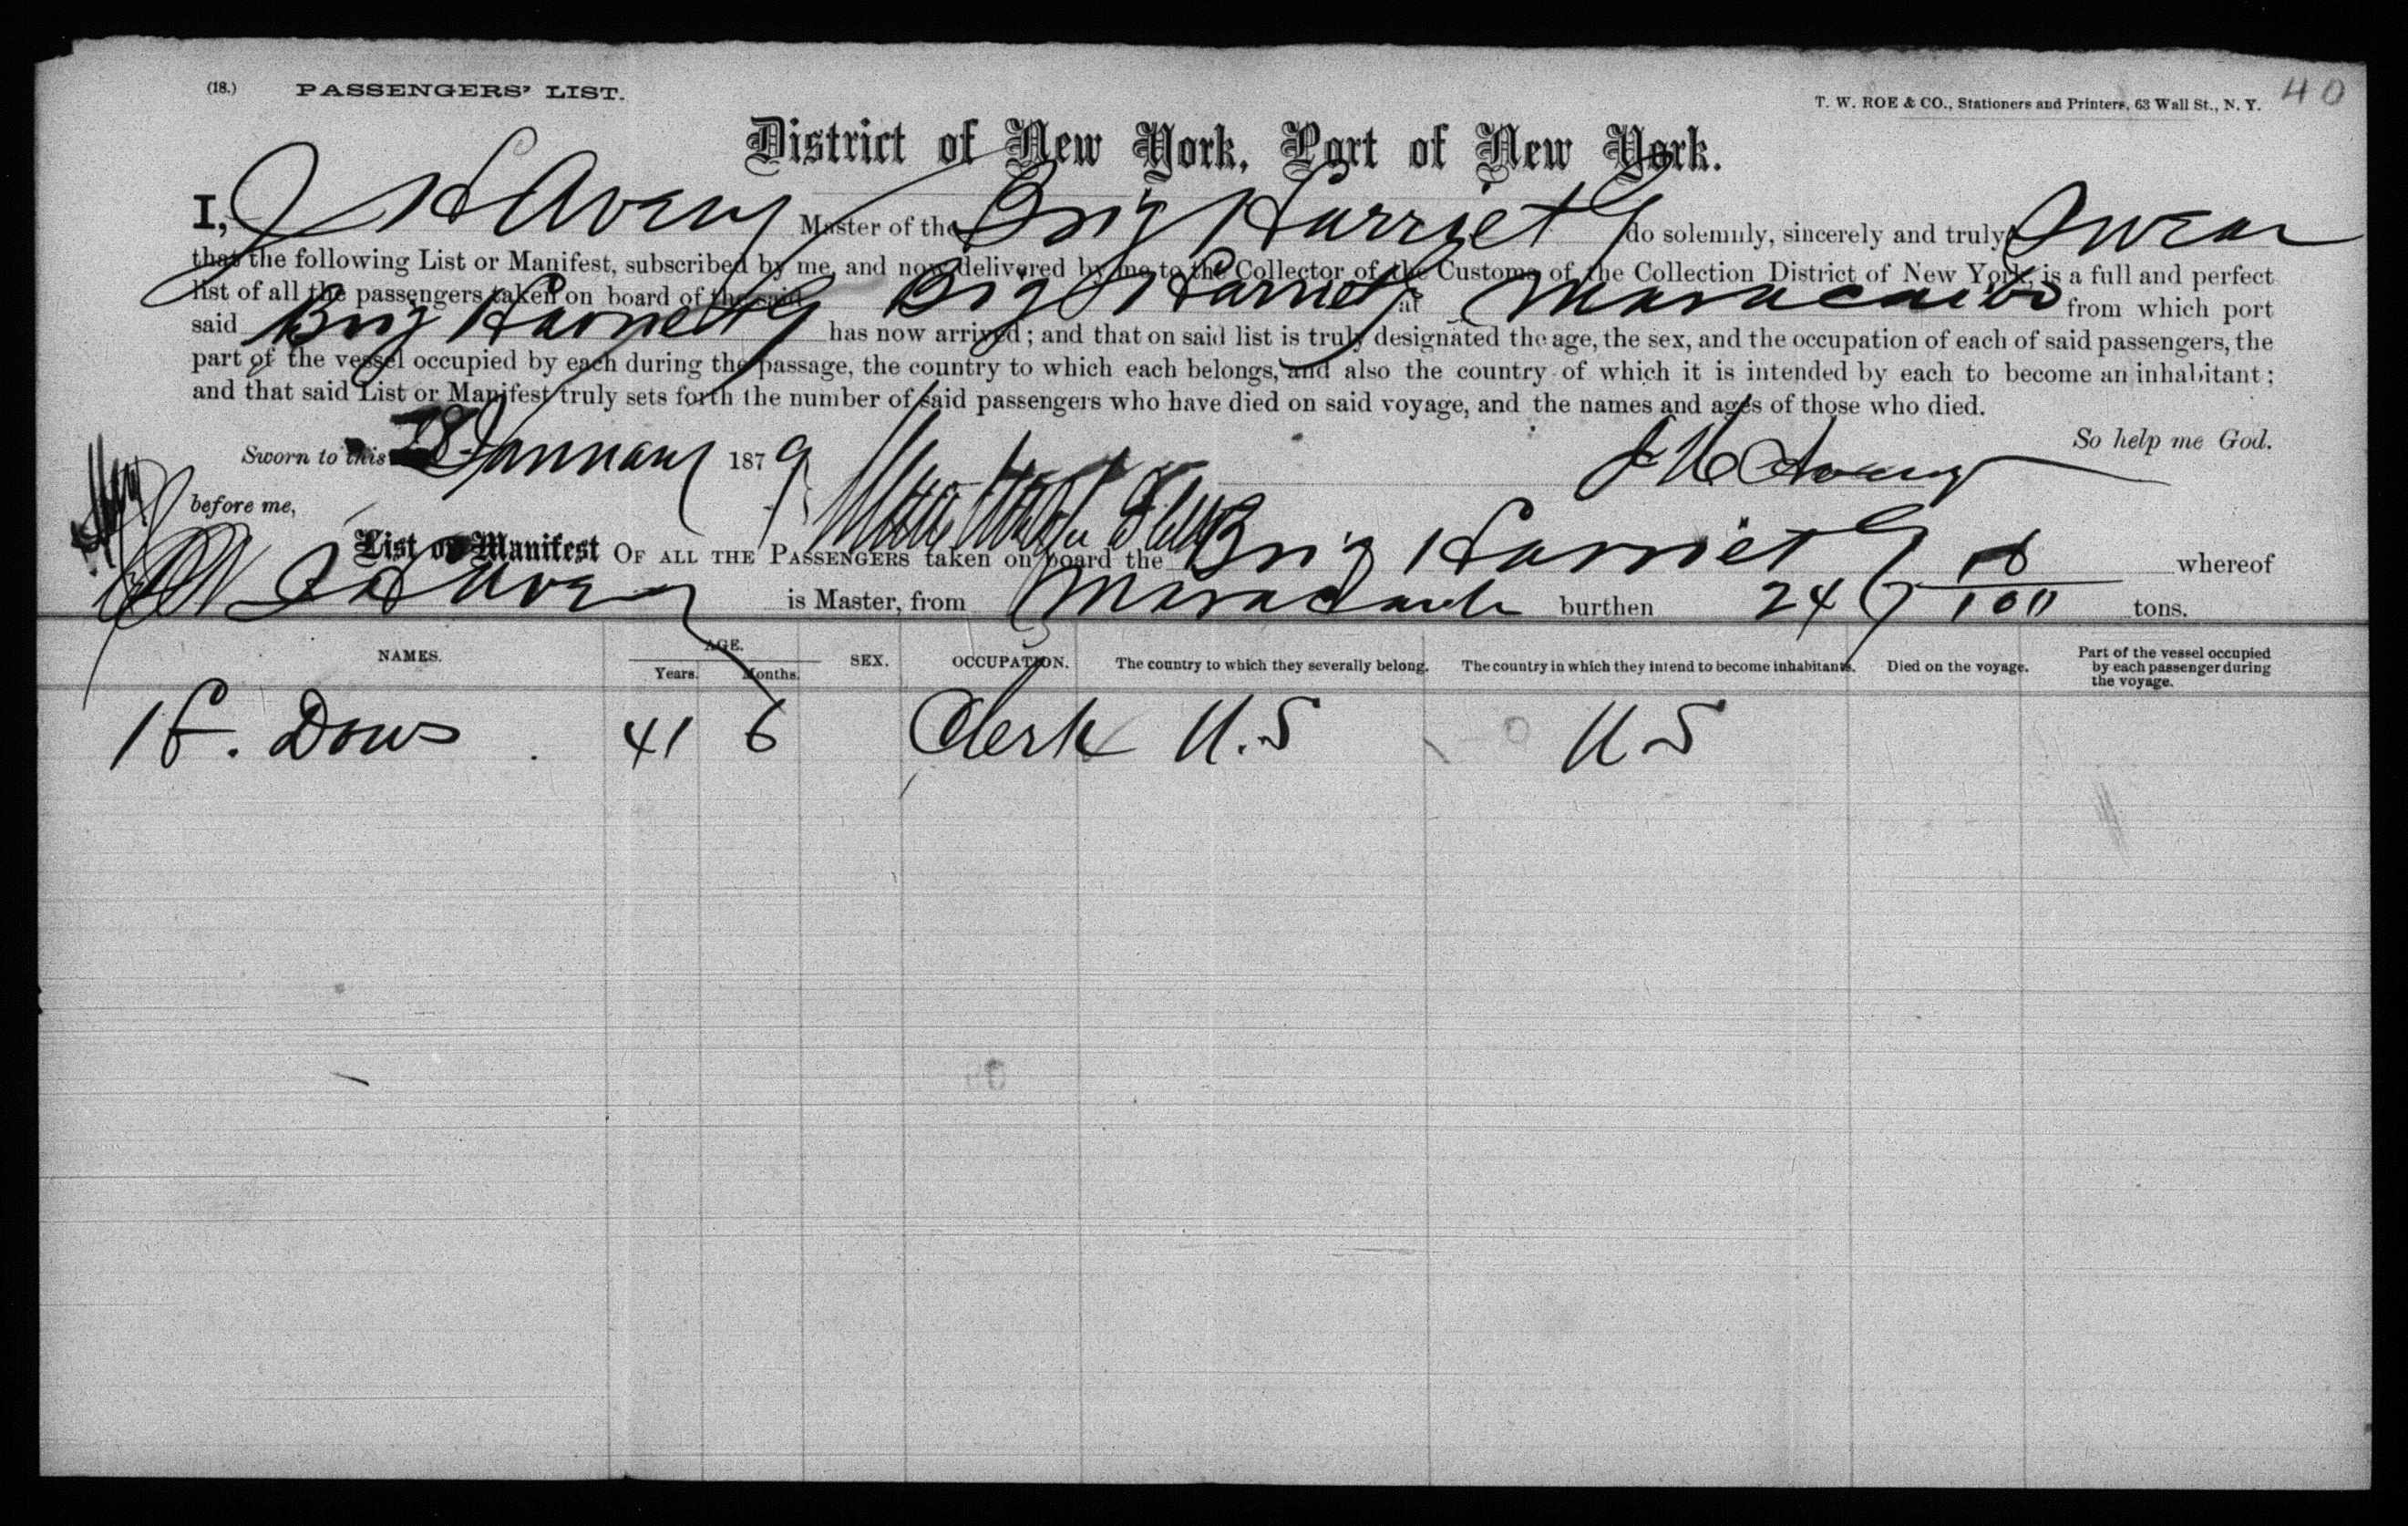 (18.) PASSENGERS' LIST.
40
T. W. ROE & CO., Stationers and Printers, 63 Wall St., N. Y.
District of New York, Port of New York.
I, J H Avery Master of the Brig Harriet G do solemnly, sincerely and truly Swear
that the following List or Manifest, subscribed by me, and now delivered by me to the Collector of the Customs of the Collection District of New York, is a full and perfect
list of all the passengers taken on board of the said Brig Harriet G at Maracaibo from which port
said Brig Harriet G has now arrived; and that on said list is truly designated the age, the sex, and the occupation of each of said passengers, the
part of the vessel occupied by each during the passage, the country to which each belongs, and also the country of which it is intended by each to become an inhabitant;
and that said List or Manifest truly sets forth the number of said passengers who have died on said voyage, and the names and ages of those who died.
So help me God.
Sworn to this 28 January 1879
J H Avery
before me,
List or Manifest OF ALL THE PASSENGERS taken on board the Brig Harriet G whereof
J H Avery is Master, from Maracaibo burthen 247 /100 tons.
NAMES. AGE. Years. Months. SEX. OCCUPATION. The country to which they severally belong. The country in which they intend to become inhabitants. Died on the voyage. Part of the vessel occupied by each passenger during the voyage.
1 Dows 41 6 Clerk U.S U S